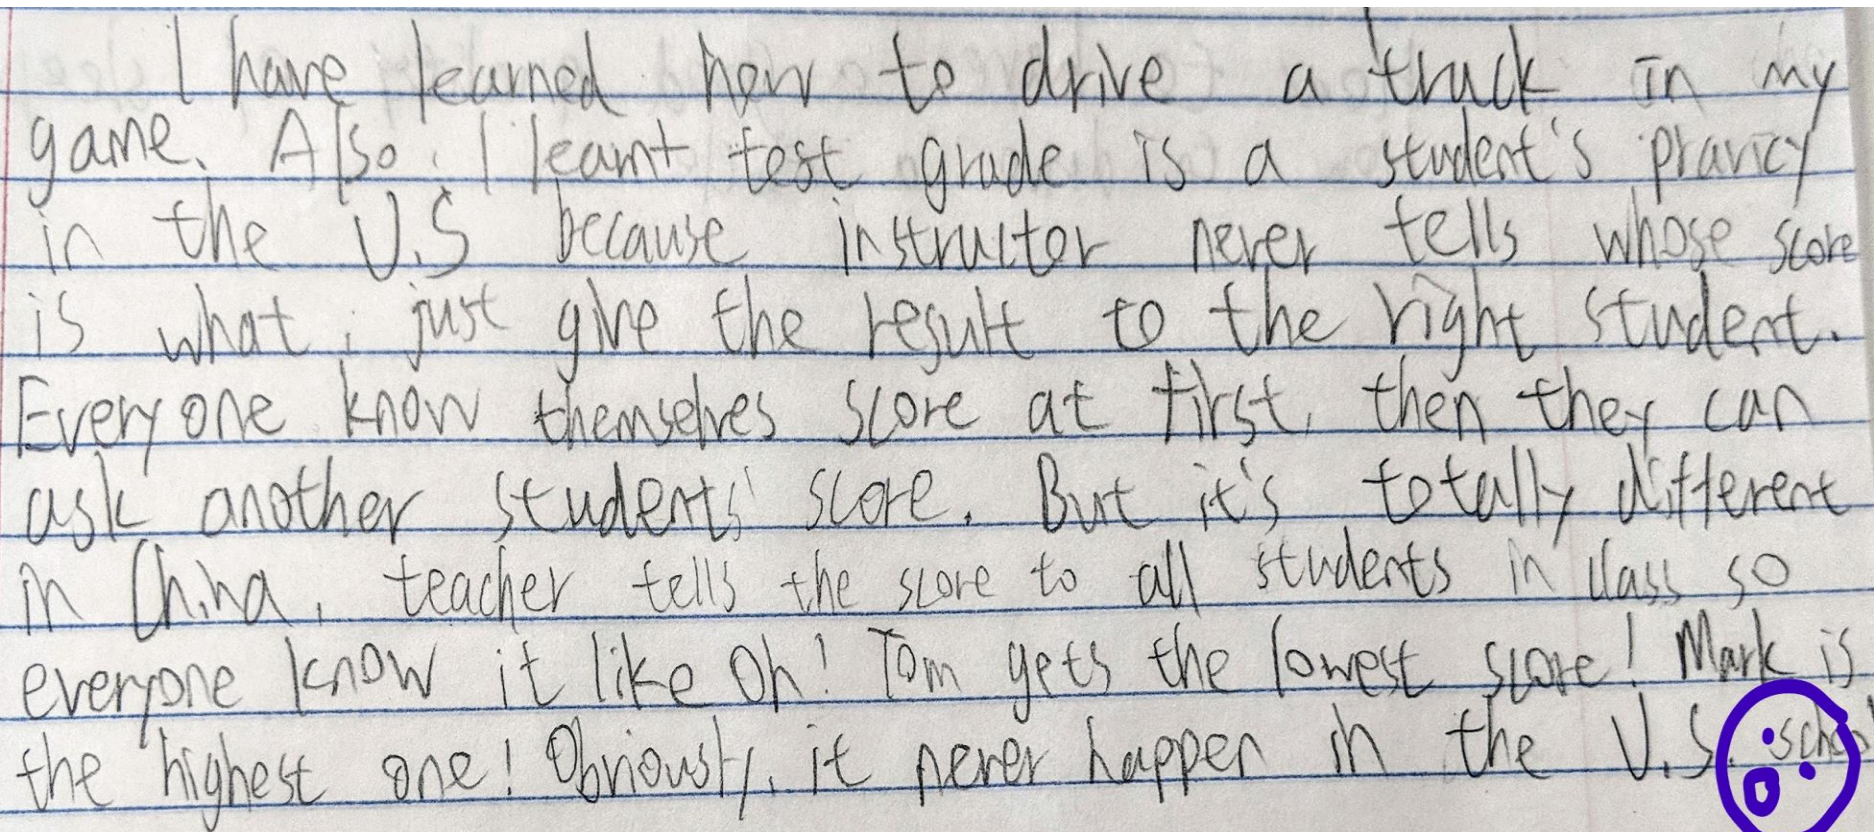 I have learned how to drive a truck in my
game. Also, I learnt test grade is a student's pravicy
in the U.S because instructor never tells whose score
is what, just give the result to the right student.
Everyone know themselves score at first, then they can
ask another students' score. But it's totally different
in China, teacher tells the score to all students in class so
everyone know it like Oh! Tom gets the lowest score! Mark is
the highest one! Obviously, it never happen in the U.S.